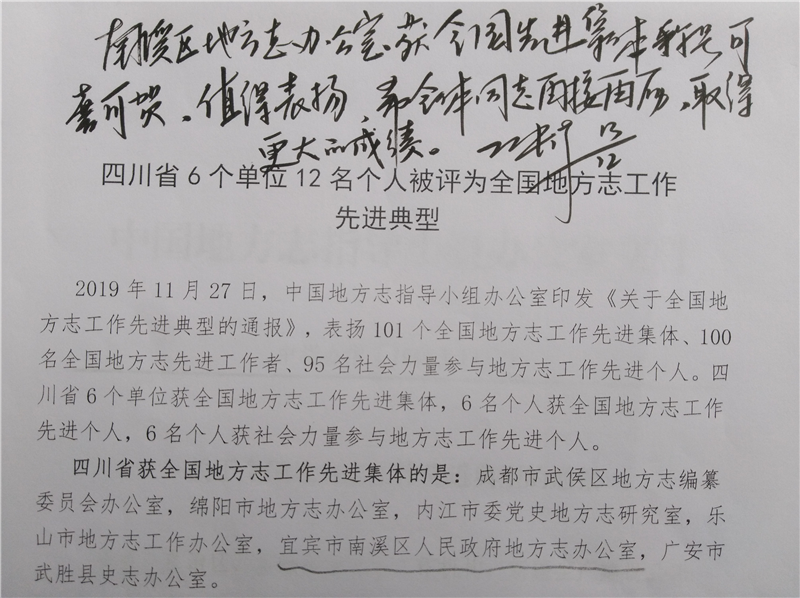 南溪区地方志办公室获全国先进集体称号可
喜可贺、值得表扬,希全体同志再接再厉、取得
更大的成绩。 13/12
四川省6个单位12名个人被评为全国地方志工作
先进典型
2019年11月27日，中国地方志指导小组办公室印发《关于全国地
方志工作先进典型的通报》，表扬101个全国地方志工作先进集体、100
名全国地方志先进工作者、95名社会力量参与地方志工作先进个人。四
川省6个单位获全国地方志工作先进集体，6名个人获全国地方志工作
先进个人，6名个人获社会力量参与地方志工作先进个人。
四川省获全国地方志工作先进集体的是：成都市武侯区地方志编纂
委员会办公室，绵阳市地方志办公室，内江市委党史地方志研究室，乐
山市地方志工作办公室，宜宾市南溪区人民政府地方志办公室，广安市
武胜县史志办公室。